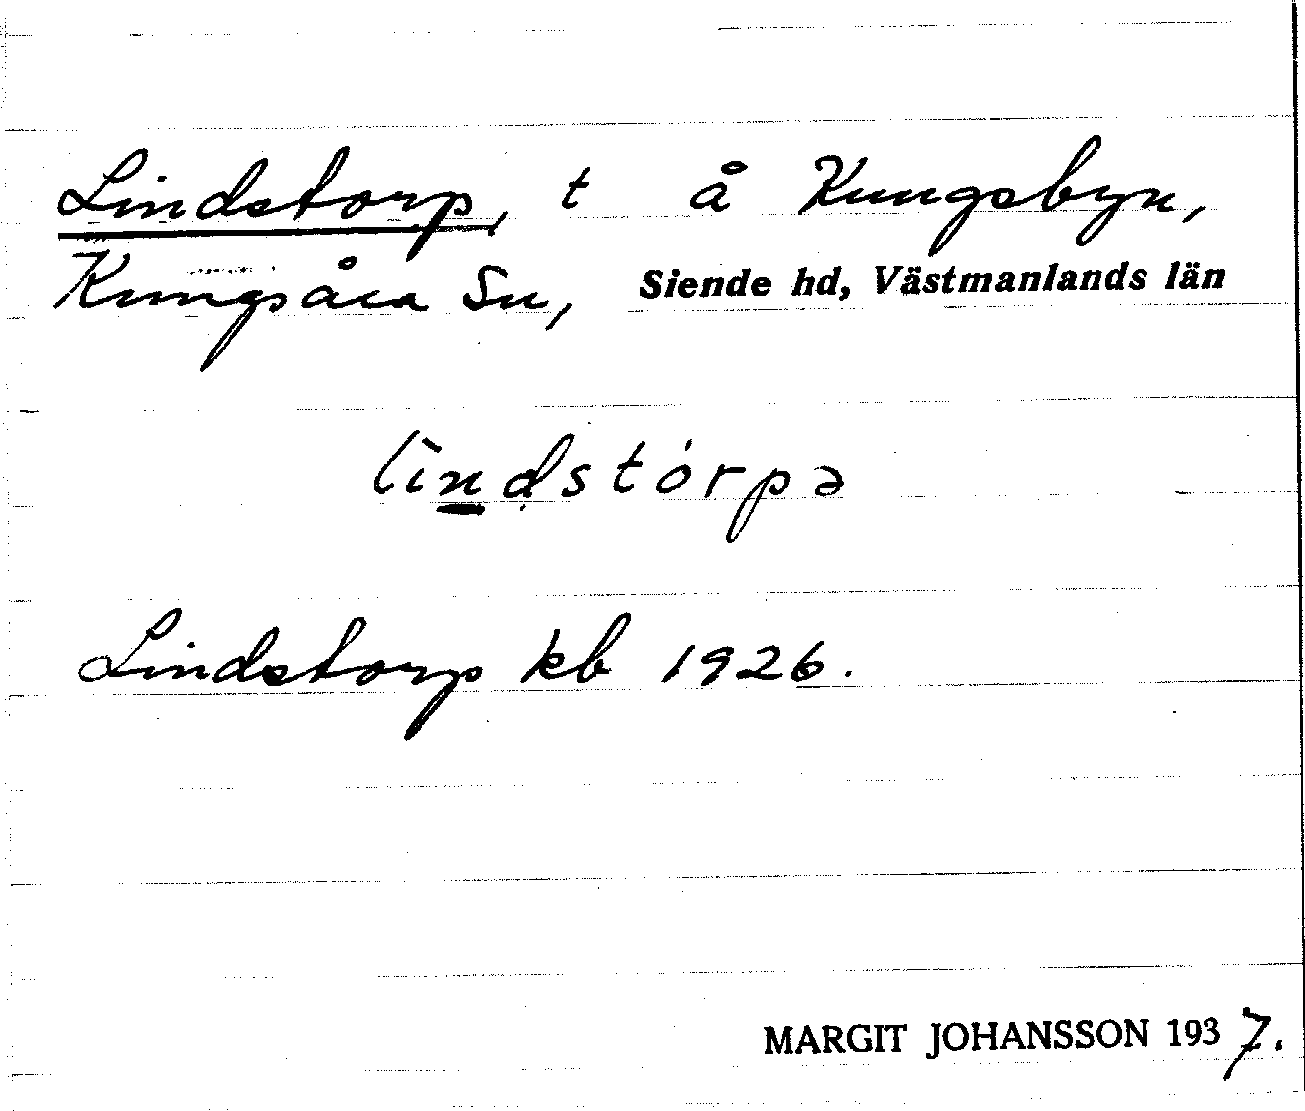 Lindstorp, t å Kungsbyn,
Kungsåra Sn, Siende hd, Västmanlands län
lìndstórpə
Lindstorp kb 1926.
MARGIT JOHANSSON 1937.